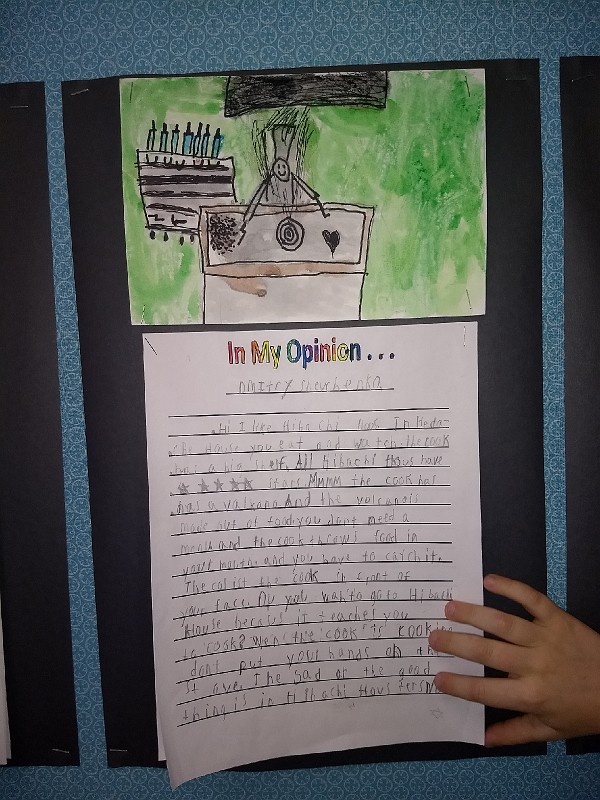 In My Opinion . . .
Dmitry Shevchenko
Hi I like Hibachi In
House you eat and watch. the cook
has a big shelf. All hibachi Hous have
☆ ☆ ☆ ☆ ☆ stars. Mmmm the cook has
has a valcano And the volcano is
made out of food. you dont need a
and the cook throws food in
your mouth. and you have to catch it.
The the cook in front of
your face. Do you wan to go to Hibachi
House becaus it teaches you
to cook? the cook is cooking
dont put your hands on the
st ove. The bad or the good
thing is in Hibachi Hous